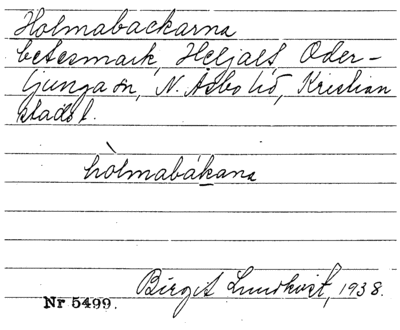 Holmabackarna
betesmark, Heljalt, Oder-
ljunga sn, N. Åsbo hd, Kristian
stads l.
hòlmabákana
Birgit Lundkvist, 1938.
Nr 5499.